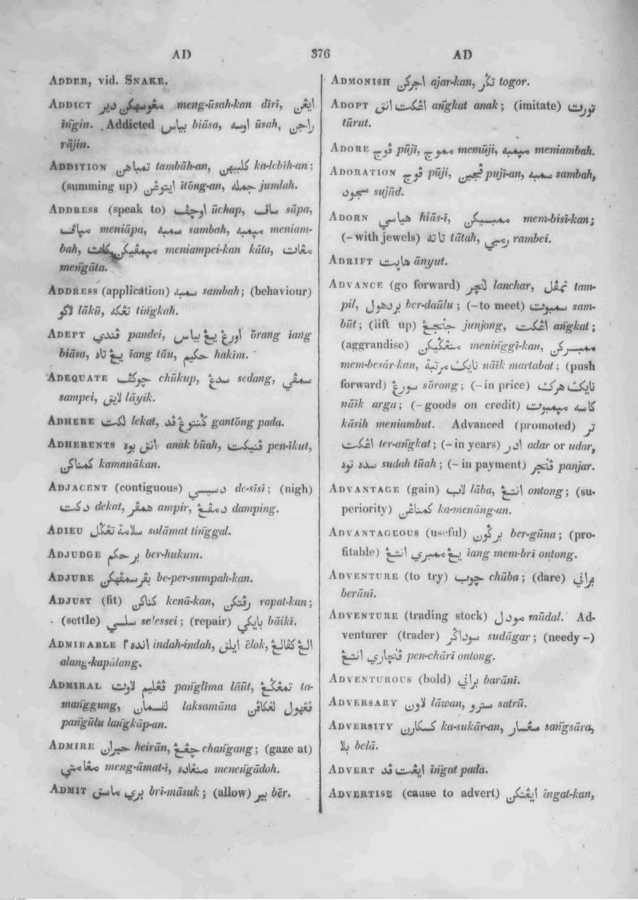 AD
376
AD
ADDER, vid. SNAKE.
ADDICT مڠوسهكن دير meng-ūsah-kan diri, ايڠن
iñgin. Addicted بياس biāsa, اوسه ūsah, راجن
rājin.
ADDITION تمباهن tambāh-an, كلبيهن ka-lebih-an;
(summing up) ايتوڠن itōng-an, جمله jumlah.
ADDRESS (speak to) اوچف ūchap, ساڤ sāpa,
مياڤ meniāpa, سمبه sambah, ميمبه meniam-
bah, meniampei-kan kāta, مڠات
meñgāta.
ADDRESS (application) سمبه sambah; (behaviour)
لاكو lākū, تڠكه tiñgkah.
ADEPT ڤندي pandei, اورڠ يڠ بياس ōrang iang
biāsa, يڠ تاه iang tāu, حكيم hakim.
ADEQUATE چوكڤ chūkup, سدڠ sedang, سمڤي
sampei, لايق lāyik.
ADHERE لكت lekat, ڬنتوڠ ڤد gantōng pada.
ADHERENTS انق بوه anak būah, ڤڠيكت pen-īkut,
كمناكن kamanākan.
ADJACENT (contiguous) دسيسي de-sīsi; (nigh)
دكت dekat, همڤر ampir, دمڤڠ damping.
ADIEU سلامة تڠڬل salāmat tiñggal.
ADJUDGE بر حكم ber-hukum.
ADJURE بڤرسمڤهكن be-per-sumpah-kan.
ADJUST (fit) كناكن kenā-kan, رڤتكن rapat-kan;
(settle) سلسي selessei; (repair) بايكي bāiki.
ADMIRABLE انده٢ indah-indah, ايلق ēlok, الڠ كڤالڠ
alang-kapālang.
ADMIRAL ڤڠليم لاوت pañglima lāūt, تمڠڬڠ ta-
mañggung, لقسمان laksamāna ڤڠهول لڠكاڤن
pañgūlu lañgkāp-an.
ADMIRE حيران heirān, چڠڠ chañgang; (gaze at)
مڠامتي meng-āmat-i, منڠاده meneñgādoh.
ADMIT بري ماسق bri-māsuk; (allow) بير bēr.
ADMONISH اجركن ajar-kan, تڬر togor.
ADOPT اڠكت انق añgkat anak; (imitate) تورت
tūrut.
ADORE ڤوج pūji, مموج memūji, ميمبه meniambah.
ADORATION ڤوج pūji, ڤجين puji-an, سمبه sambah,
سجود sujūd.
ADORN هياسي hiās-i, ممبسيكن mem-bisi-kan;
(– with jewels) تاته tātah, رمبي rambei.
ADRIFT هايت ānyut.
ADVANCE (go forward) لنچر lanchar, تمڤل tam-
pil, بردهول ber-daūlu; (– to meet) سمبوت sam-
būt; (lift up) جنجڠ junjong, اڠكت añgkat;
(aggrandise) منڠڬيكن meniñggi-kan, ممبسركن
mem-besár-kan, نايك مرتبة nāik martabat; (push
forward) سورڠ sōrong; (– in price) نايك هرڬ
nāik arga; (– goods on credit) كاسه ميمبوت
kāsih meniambut. Advanced (promoted) تر
اڠكت ter-añgkat; (– in years) ادر adar or udar,
سده توه sudah tūah; (– in payment) ڤنجر panjar.
ADVANTAGE (gain) لاب lāba, انتڠ ontong; (su-
periority) كمناڠن ka-menāng-an.
ADVANTAGEOUS (useful) برڬون ber-gūna; (pro-
fitable) يڠ ممبري انتڠ iang mem-bri ontong.
ADVENTURE (to try) چوب chūba; (dare) براني
berāni.
ADVENTURE (trading stock) مودل mūdal. Ad-
venturer (trader) سوداڬر sudāgar; (needy –)
ڤنچاري انتڠ pen-chāri ontong.
ADVENTUROUS (bold) براني barāni.
ADVERSARY لاون lāwan, سترو satrū.
ADVERSITY كسكارن ka-sukār-an, سڠسار sañgsāra,
بلا belā.
ADVERT ايڠت ڤد iñgat pada.
ADVERTISE (cause to advert) ايڠتكن ingat-kan,